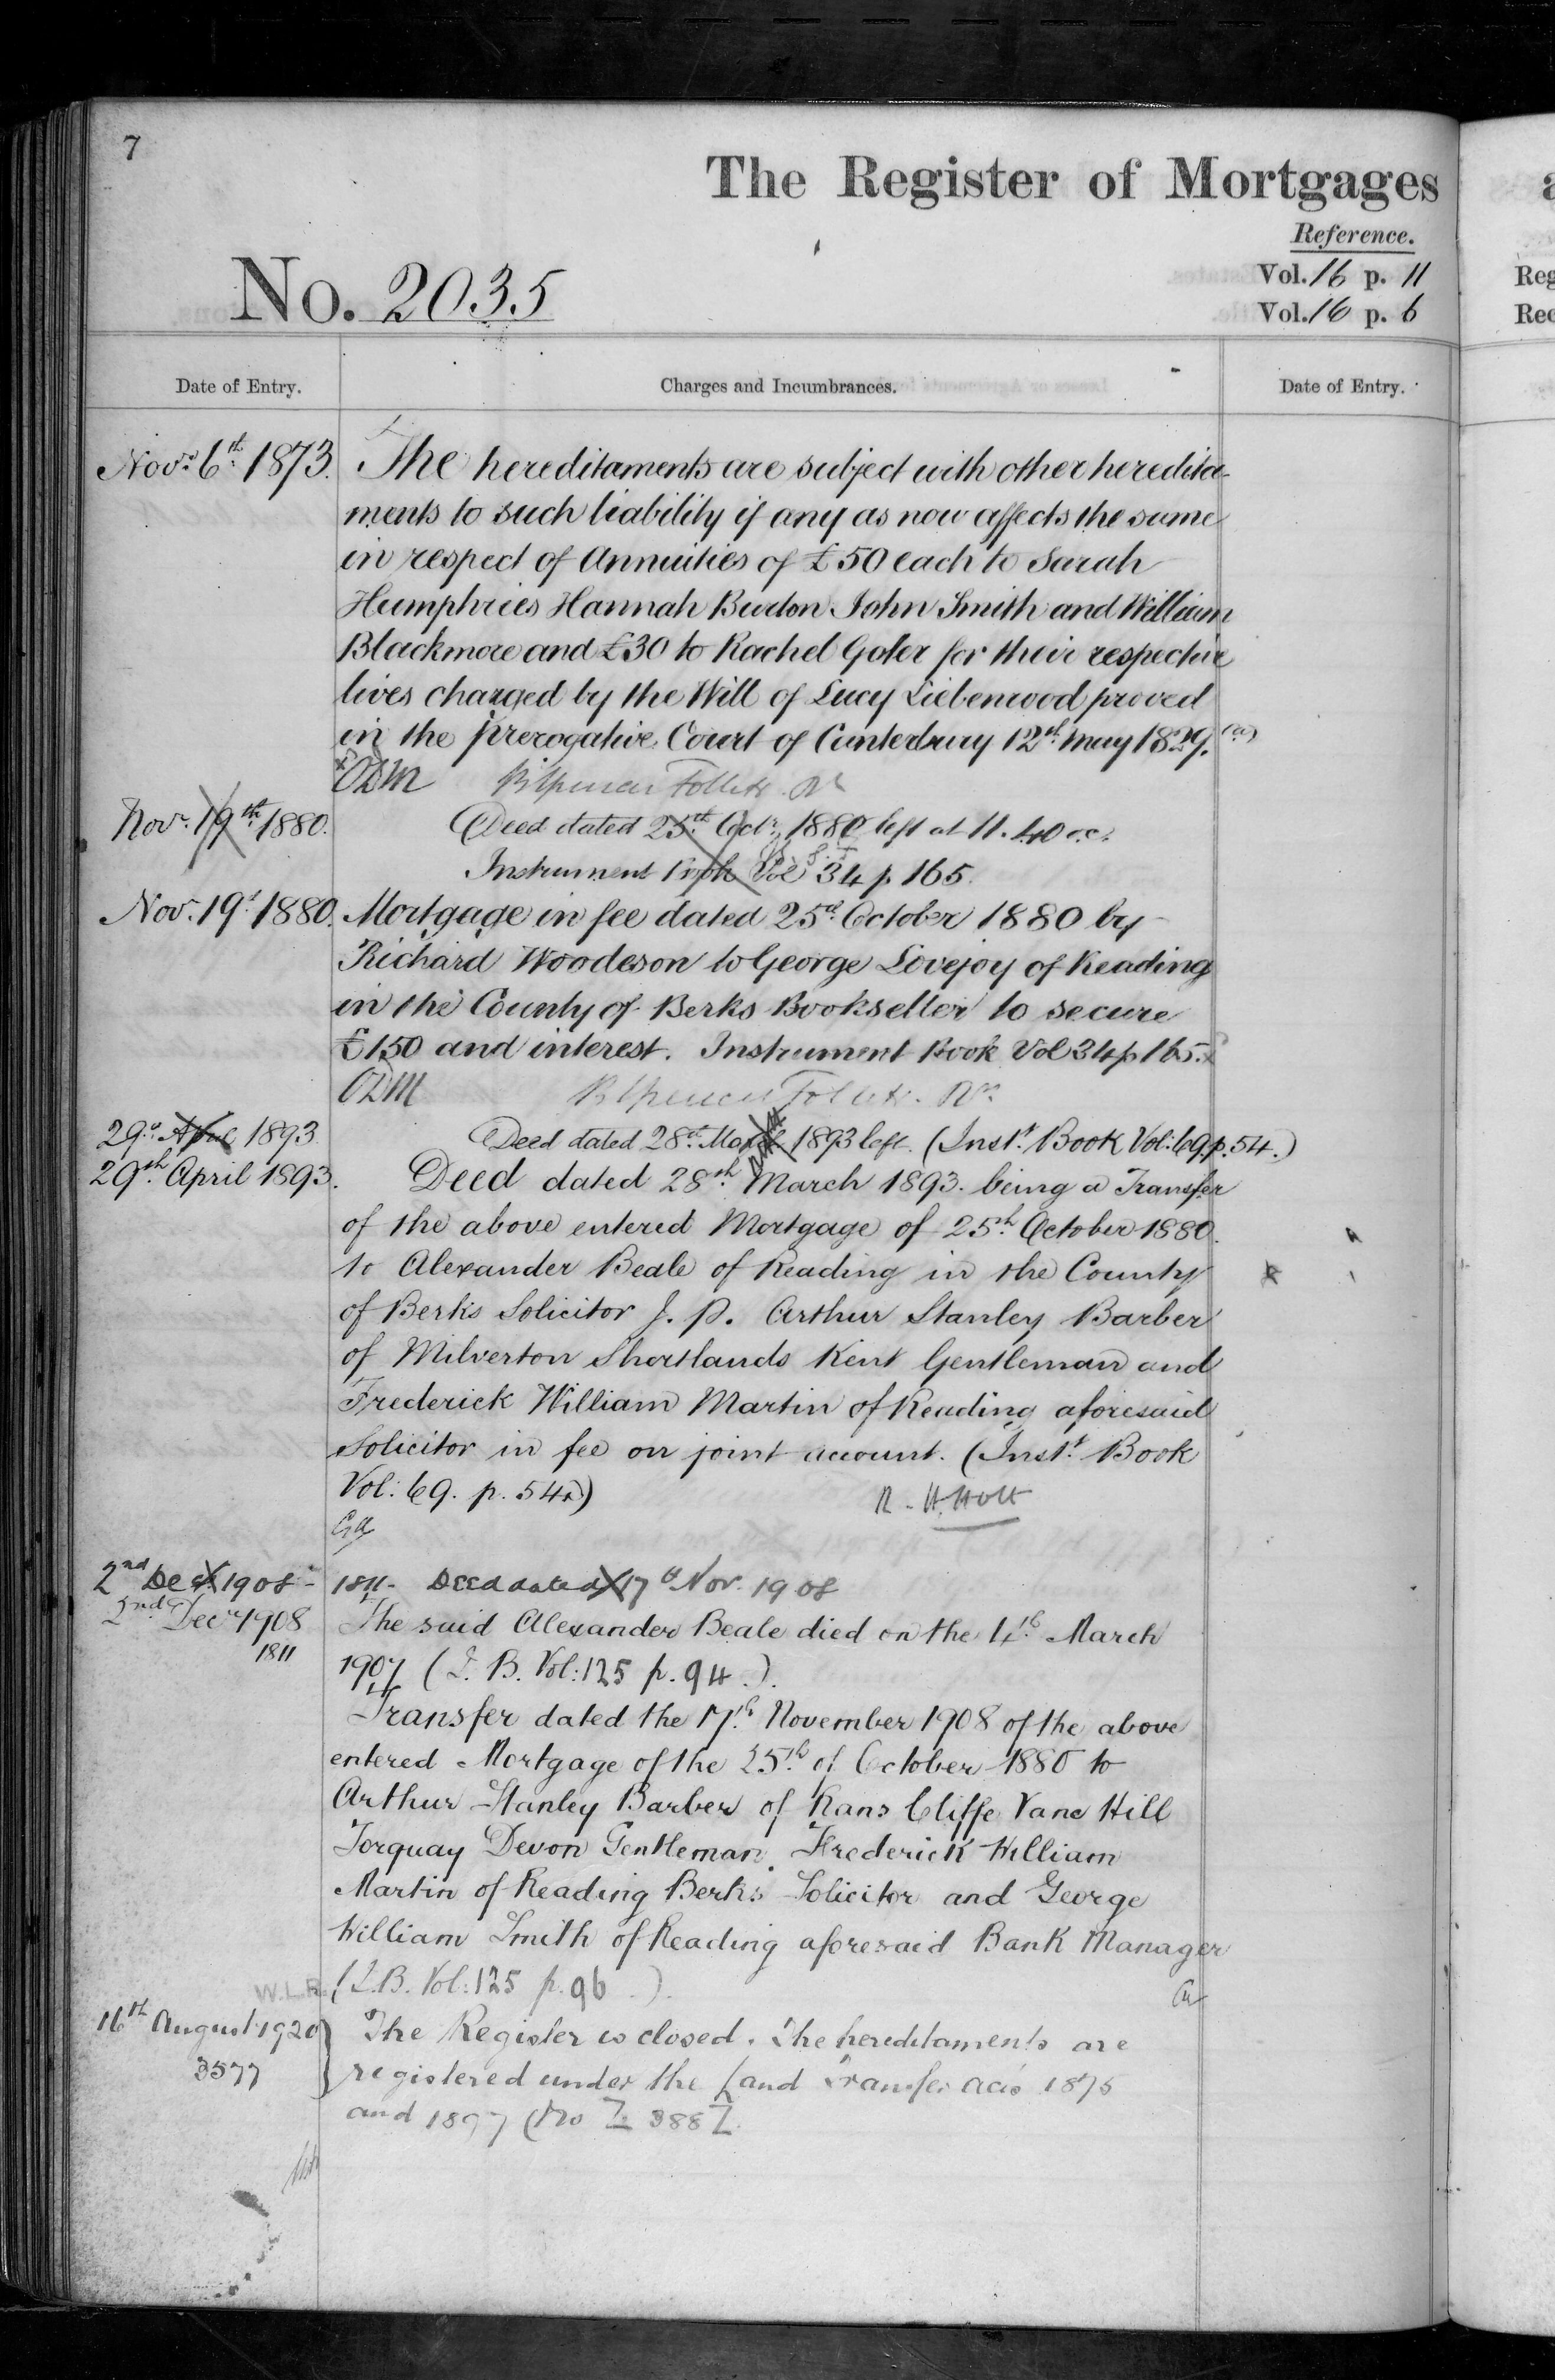 7
The Register of Mortgages
Reference.
No. 2035
Vol. 16 p. 11
Vol. 16 p. 6
Reg
Rec
Date of Entry.
Charges and Incumbrances.
Date of Entry.
Novr. 6th 1873. The hereditaments are subject with other heredita-
ments to such liability if any as now affects the same
in respect of Annuities of £50 each to Sarah
Humphries Hannah Burton John Smith and William
Blackmore and £30 to Rachel Goter for their respective
lives charged by the Will of Lucy Liebenrood proved
in the Prerogative Court of Canterbury 12th May 1829. (a)
ODM BSpencer Follett. Rr
Novr. 19th 1880. Deed dated 25th Octr. 1880 left at 11.40 oc.
Instrument Book Vol 34 p 165.
Nov. 19th 1880. Mortgage in fee dated 25th October 1880 by
Richard Woodeson to George Lovejoy of Reading
in the County of Berks Bookseller to secure
£150 and interest. Instrument Book Vol 34 p 165.
ODM BSpencer Follett. Rr
29th April 1893. Deed dated 28th March 1893 left. (Instt. Book Vol: 69. p. 54.)
29th April 1893. Deed dated 28th March 1893. being a Transfer
of the above entered Mortgage of 25th October 1880.
to Alexander Beale of Reading in the County
of Berks Solicitor J. P. Arthur Stanley Barber
of Milverton Shortlands Kent Gentleman and
Frederick William Martin of Reading aforesaid
Solicitor in fee on joint account. (Instt. Book
Vol: 69. p. 54.)
R. H. Holt
2nd Dec 1908 - 1811 - Deed dated 17th Nov. 1908
2nd Decr. 1908 The said Alexander Beale died on the 4th March
1811 1907 (I. B. Vol: 125 p. 94.).
Transfer dated the 17th November 1908 of the above
entered Mortgage of the 25th of October 1880 to
Arthur Stanley Barber of Rans Cliffe Vane Hill
Torquay Devon Gentleman, Frederick William
Martin of Reading Berks Solicitor and George
William Smith of Reading aforesaid Bank Manager
W.L.R. (I.B. Vol: 125 p. 96.).
16th August 1920 The Register is closed. The hereditaments are
3577 registered under the Land Transfer Acts 1875
and 1897 (No